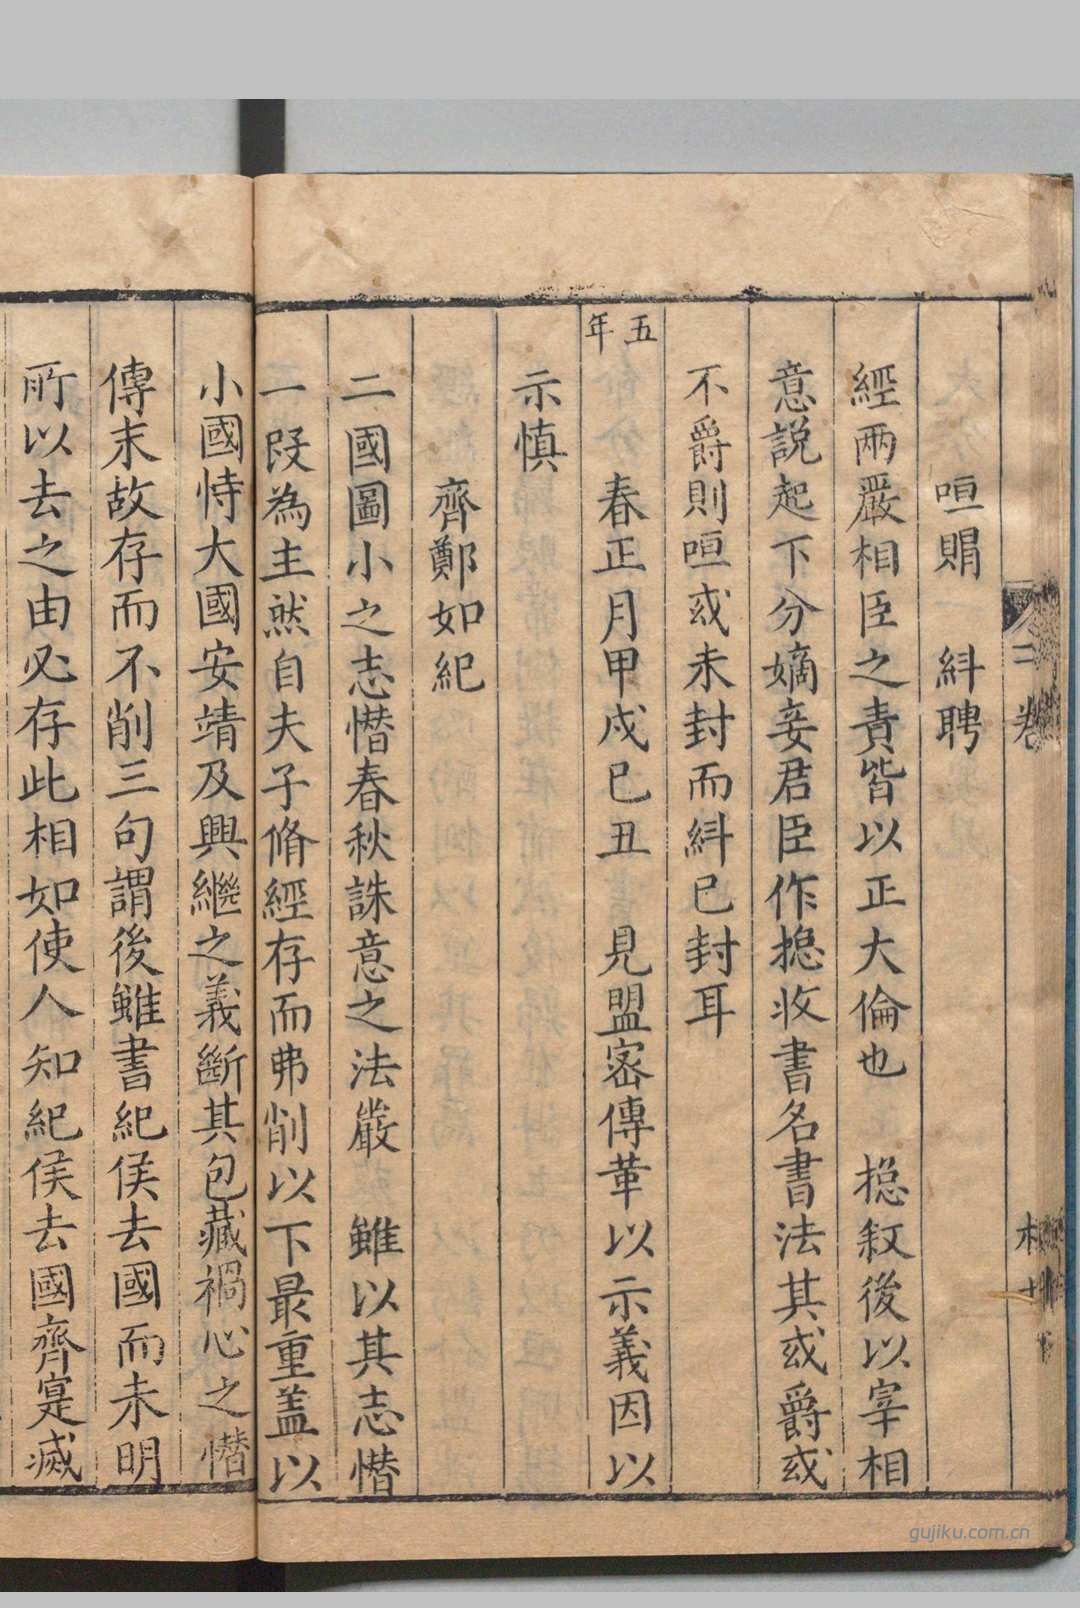 二卷
咺賵 紏聘
經兩嚴相臣之責皆以正大倫也 揔叙後以宰相
意説起下分嫡妾君臣作揔收書名書法其或爵或
不爵則咺或未封而紏已封耳
五年
春正月甲戍已丑 見盟宻傳革以示義因以
示慎
齊鄭如紀
二國圖小之志憯春秋誅意之法嚴 雖以其志憯
一旣為主然自夫子脩經存而弗削以下最重盖以
小國恃大國安靖及興繼之義斷其包藏禍心之憯
傳末故存而不削三句謂後雖書紀侯去國而未明
所以去之由必存此相如使人知紀侯去國齊寔滅
gujiku.com.cn